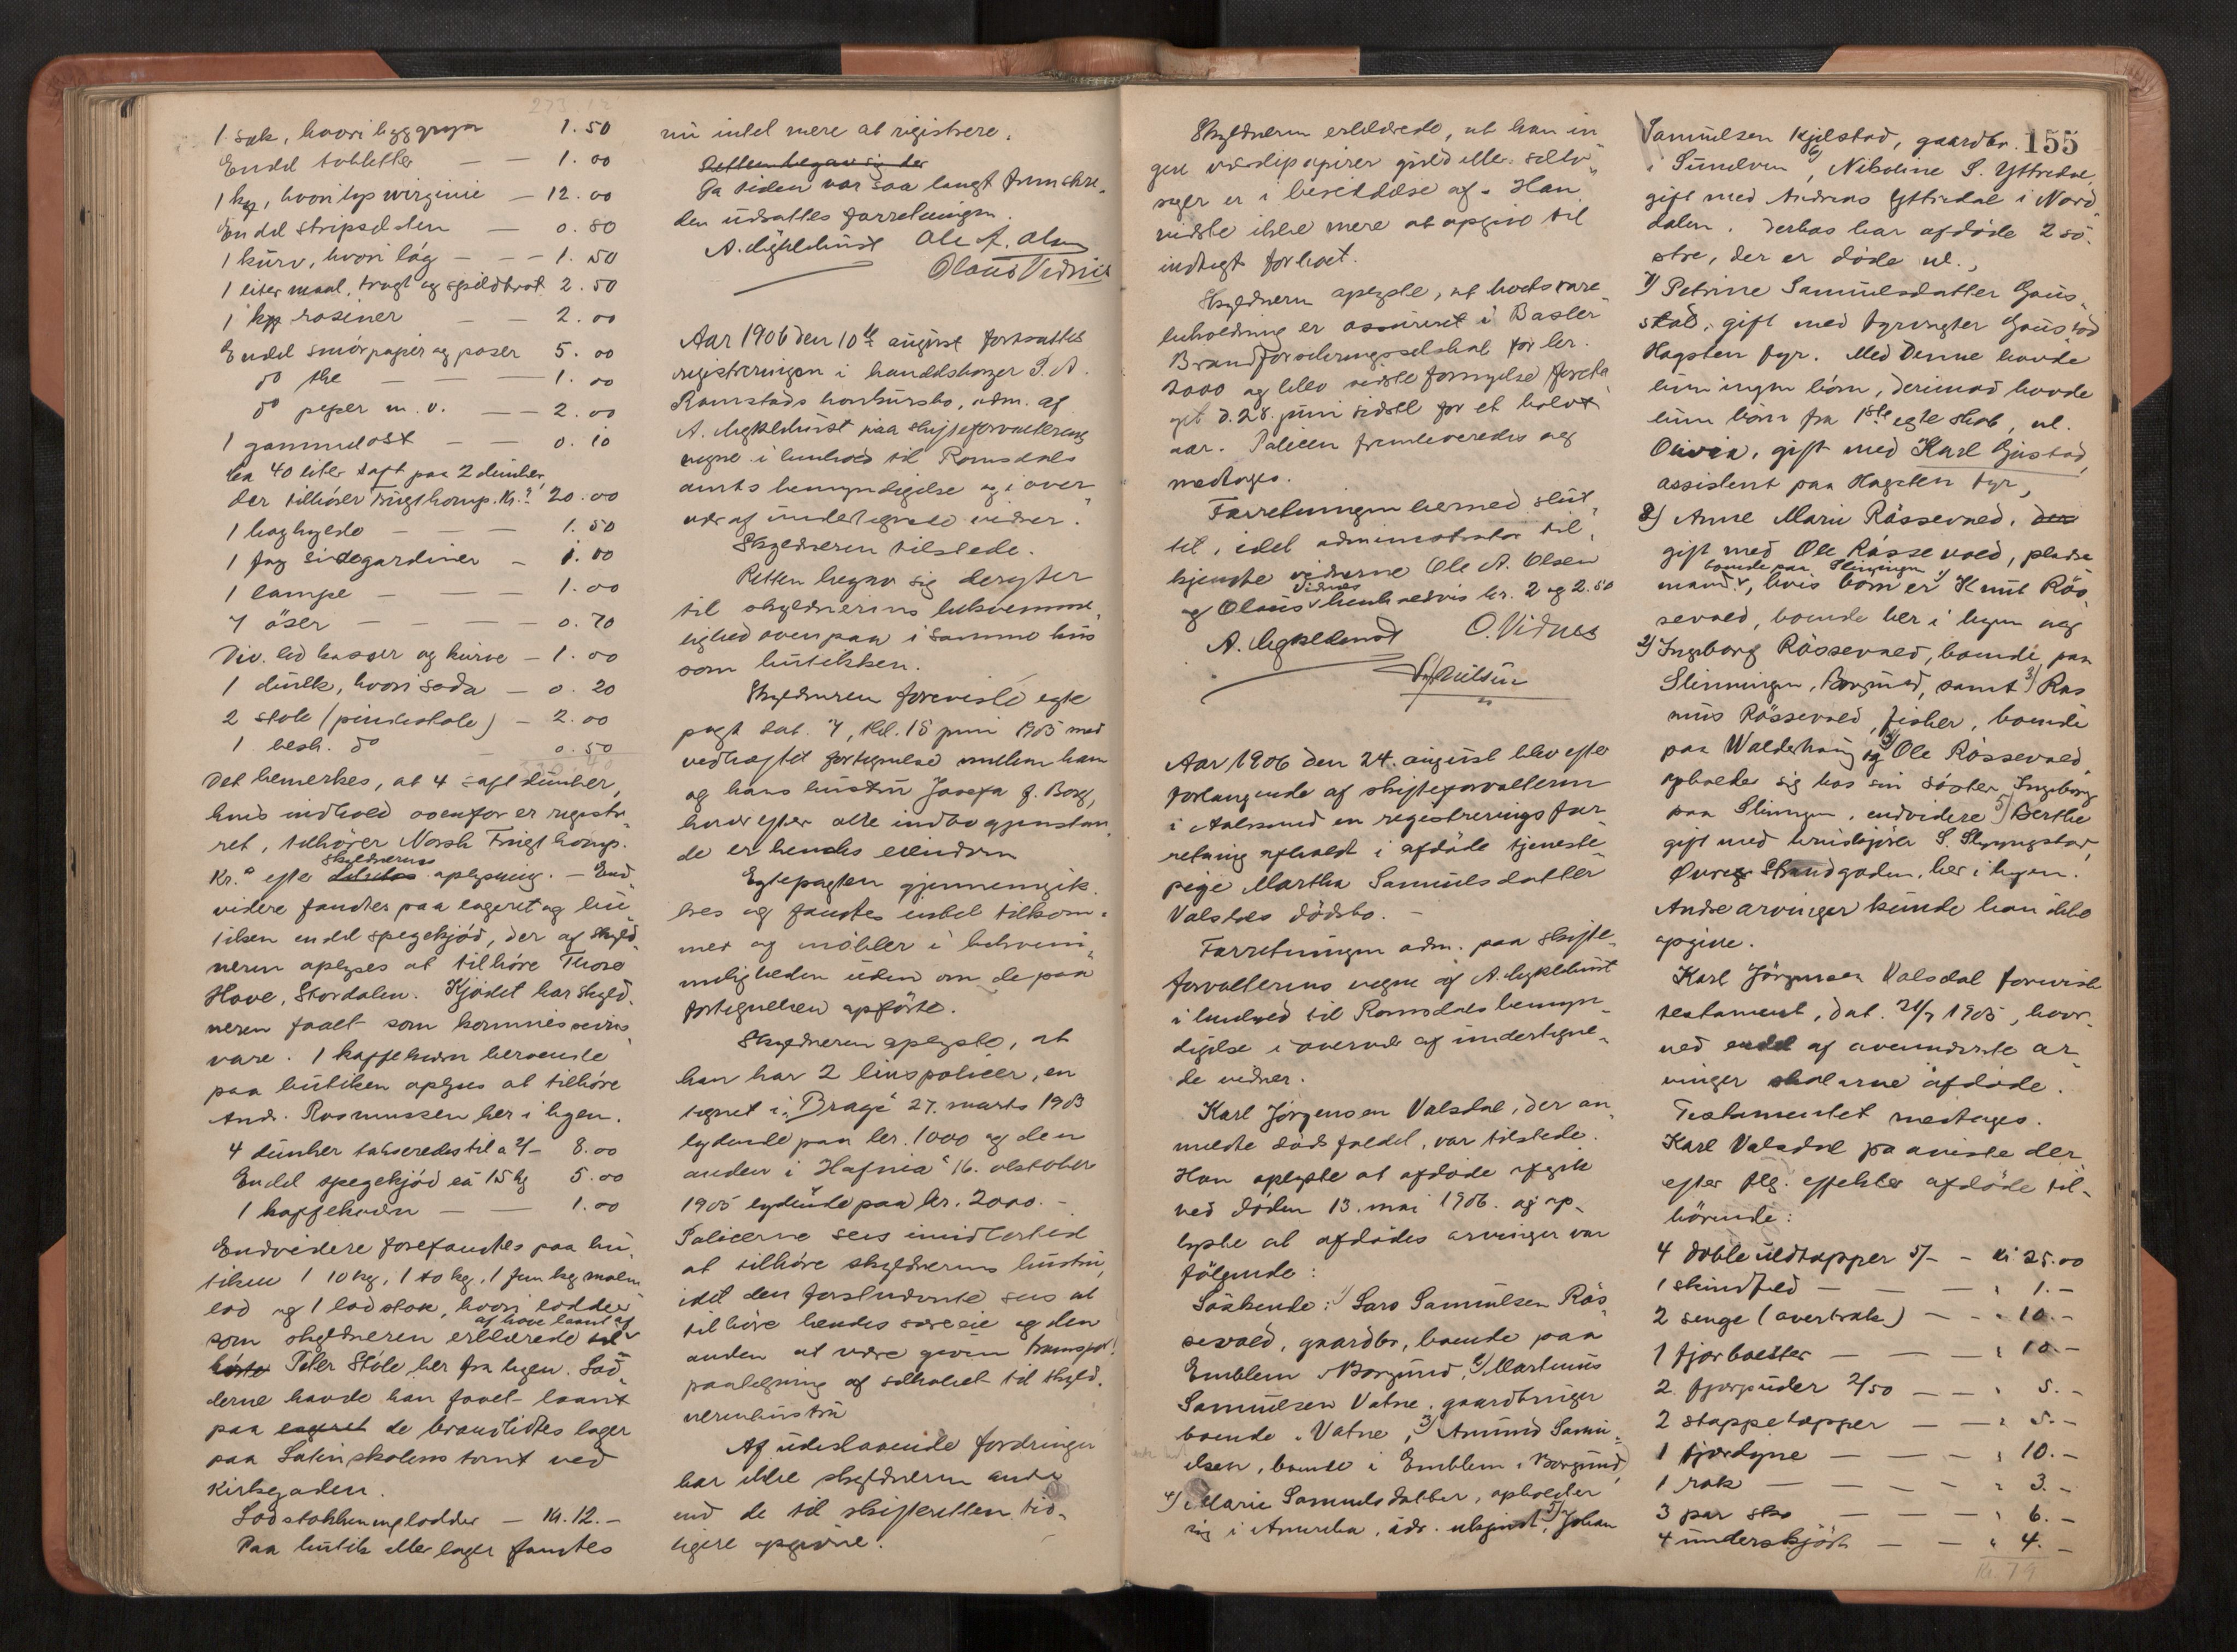 273.12
1 sæk, hvori bygggryn 1.50
Endel tobletter — — 1.00
1 kg, hvori lys wirginie — 12.00
Endel stripsel sten — 0.80
1 kurv, hvori løg — — 1.50
1 liter maal, tragt og spildbrat 2.50
1 kg rosiner — — 2.00
Endel smørpapir og poser 5.00
do the — — — 1.00
do peper m. v. — — 2.00
1 gammelost — — 0.10
Ca 40 liter saft paa 2 dunker,
der tilhører Frugtkomp. Kr.? 20.00
1 baghylde — — — 1.50
1 fag sidegardiner — 1.00
1 lampe — — — 1.00
7 øser — — — — 0.70
Div. lid kasser og kurve — 1.00
1 dunk, hvori soda — 0.20
2 stole (pindestole) — 2.00
1 besk. do — 0.50
Det bemerkes, at 4 saft dunker,
hvis indhold ovenfor er registr-
ret, tilhører Norsk Frugtkomp.
skyldnerens
Kr.a efter oplysning. — End-
videre fandtes paa lageret og bu-
tiken endel spegekjød, der af skyld-
neren oplyses at tilhøre Thore
Hove, Stordalen. Kjødet har skyld-
neren faaet som kommissions
vare. 1 kaffekvern beroende
paa butiken oplyses at tilhøre
Andr. Rasmussen her i byen.
4 dunker taxeredes til a 2/— 8.00
Endel spegekjød ca 15 kg 5.00
1 kaffekvern — — 1.00
Endvidere forefandtes paa bu-
tiken 1 10 kg, 1 40 kg, 1 fem kg malm
lod og 1 lodstok, hvori lodder
at have laant af
som skyldneren erklærede
Peter Støle her fra byen. Lod-
derne havde han faaet laant
paa lageret de brandlidtes lager
paa Latinskolens tomt ved
Kirkegaden.
Lodstokken mg lodder — Kr. 12.—
Paa butik eller lager fandtes
nu intet mere at registrere.
Retten begav sig der
Da tiden var saa langt fremskre-
den udsattes forretningen.
A. Lykkehurst Ole A. Olsen
Olaus Vidnes
Aar 1906 den 10de august fortsattes
registreringen i handelsborger P. A.
Ramstads konkursbo, adm. af
A. Lykkehurst paa skifteforvalterens
vegne i henhold til Romsdals
amts bemyndigelse og i over-
vær af undertegnede vidner.
Skyldneren tilstede.
Retten begav sig derefter
til skyldnerens bekvemme-
lighed ovenpaa i samme hus
som butikken.
Skyldneren foreviste egte
pagt dat. 7, thl. 15 juni 1905 med
vedhæftet fortegnelse mellem ham
og hans hustru Josefa f. Borg,
hvorefter alle indbogjenstan-
de er hendes eiendom
Egtepagten gjennemgik-
kes og fandtes intet tilkom-
met og møbler i bekvem-
meligheden uden om de paa
fortegnelsen opførte.
Skyldneren oplyste, at
han har 2 livspolicer, en
tegnet i "Brage" 27. marts 1903
lydende paa kr. 1000 og den
anden i "Hafnia" 16. oktober
1905 lydende paa kr. 2000.—
Policerne sees imidlertid
at tilhøre skyldnerens hustru,
idet den førstnævnte sees at
tilhøre hendes særeie og den
anden at være given transport
paategning af selskabet til skyld-
nerens hustru
Af udestaaende fordringer
har ikke skyldneren andre
end de til skifteretten tid-
ligere opgivne.
Skyldneren erklærede, at han in
gen værdipapirer guld eller sølv-
sager er i besiddelse af. Han
vidste ikke mere at opgive til
indtægt for boet.
Skyldneren oplyste, at boets vare-
beholdning er assureret i Basler
Brandforsikringsselskab for kr.
2000 og blev sidste fornyelse foreta-
get d. 28. juni sidstl for et halvt
aar. Policen fremleveredes og
medtages.
Forretningen hermed slut-
tet, idet administrator til-
kjendte vidnerne Ole A. Olsen
Vidnes
og Olaus henholdsvis kr. 2 og 2.50
A. Lykkehurst O. Vidnes
Aar 1906 den 24. august blev efter
forlangende af skifteforvalteren
i Aalesund en registreringsfor-
retning afholdt i afdøde tjeneste-
pige Martha Samuelsdatter
Valsdals dødsbo.—
Forretningen adm. paa skifte-
forvalterens vegne af A. Lykkehurst
i henhold til Romsdals bemyn-
digelse i overvær af undertegne-
de vidner.
Karl Jørgensen Valsdal, der an-
meldte dødsfaldet, var tilstede.
Han oplyste at afdøde afgik
ved døden 13. mai 1906. og op-
lyste at afdødes arvinger var
følgende:
Søskende: 1) Lars Samuelsen Røs-
sevold, gaardbr, boende paa
Emblem i Borgund, 2) Martinus
Samuelsen Vatne, gaardbruger
boende i Vatne, 3) Amund Samu-
elsen, boende i Emblem i Borgund,
4) Marie Samuelsdatter, opholder
sig i Amerika, adr. ukjendt, 5) Johan
155
Samuelsen Kjelstad, gaardbr.
i Sunelven, 6) Nikoline S. Yttredal,
gift med Andreas Yttredal i Nord
dalen. Derhos har afdøde 2 sø-
stre, der er døde nl.,
7) Petrine Samuelsdatter Gaus-
stad, gift med fyrvogter Gaustad
Hogsten fyr. Med denne havde
hun ingen børn, derimod havde
hun børn fra 1ste egteskab, nl.
Olivia, gift med Karl Gjustad,
assistent paa Hogsten fyr,
8) Anne Marie Røssevold, der
gift med Ole Røssevold, plads-
boende paa Slinningen
mand, hvis børn er 1) Knut Røs-
sevold, boende her i byen og
2) Ingeborg Røssevold, boende paa
Slinningen, Borgund, samt 3) Ras
mus Røssevold, fisker, boende
paa Walderhaug og 4) Ole Røssevold,
opholder sig hos sin søster Ingeborg
paa Slinningen, endvidere 5) Berthe
gift med S. Skyggestad,
Øvre Strandgaden, her i byen.
Andre arvinger kunde han ikke
opgive.
Karl Jørgensen Valsdal foreviste
testament, dat. 21/7 1905, hvor-
ved endel af ovennævnte ar-
vinger skal arve afdøde.
Testamentet medtages.
Karl Valsdal paaviste der-
efter flg. effekter afdøde til-
hørende:
4 doble uldtæpper 5/— — kr 25.00
1 skindfed — — — " 1.—
2 senge (overtræk) — — " 10.—
1 fjærbolster — — — " 10.—
2 fjærputer 2/50 — — " 5.—
2 stappetæpper — — " 5.—
1 fjærdyne — — — " 10.—
1 rok — — — — " 3.—
3 par sko — — — " 6.—
4 underskjørt — — " 4.—
Kr. 79